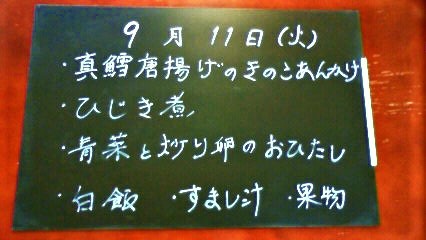 9月11日(火)
・真鱈唐揚げのきのこあんかけ
・ひじき煮
・青菜と炒り卵のおひたし
・白飯 ・すまし汁 ・果物